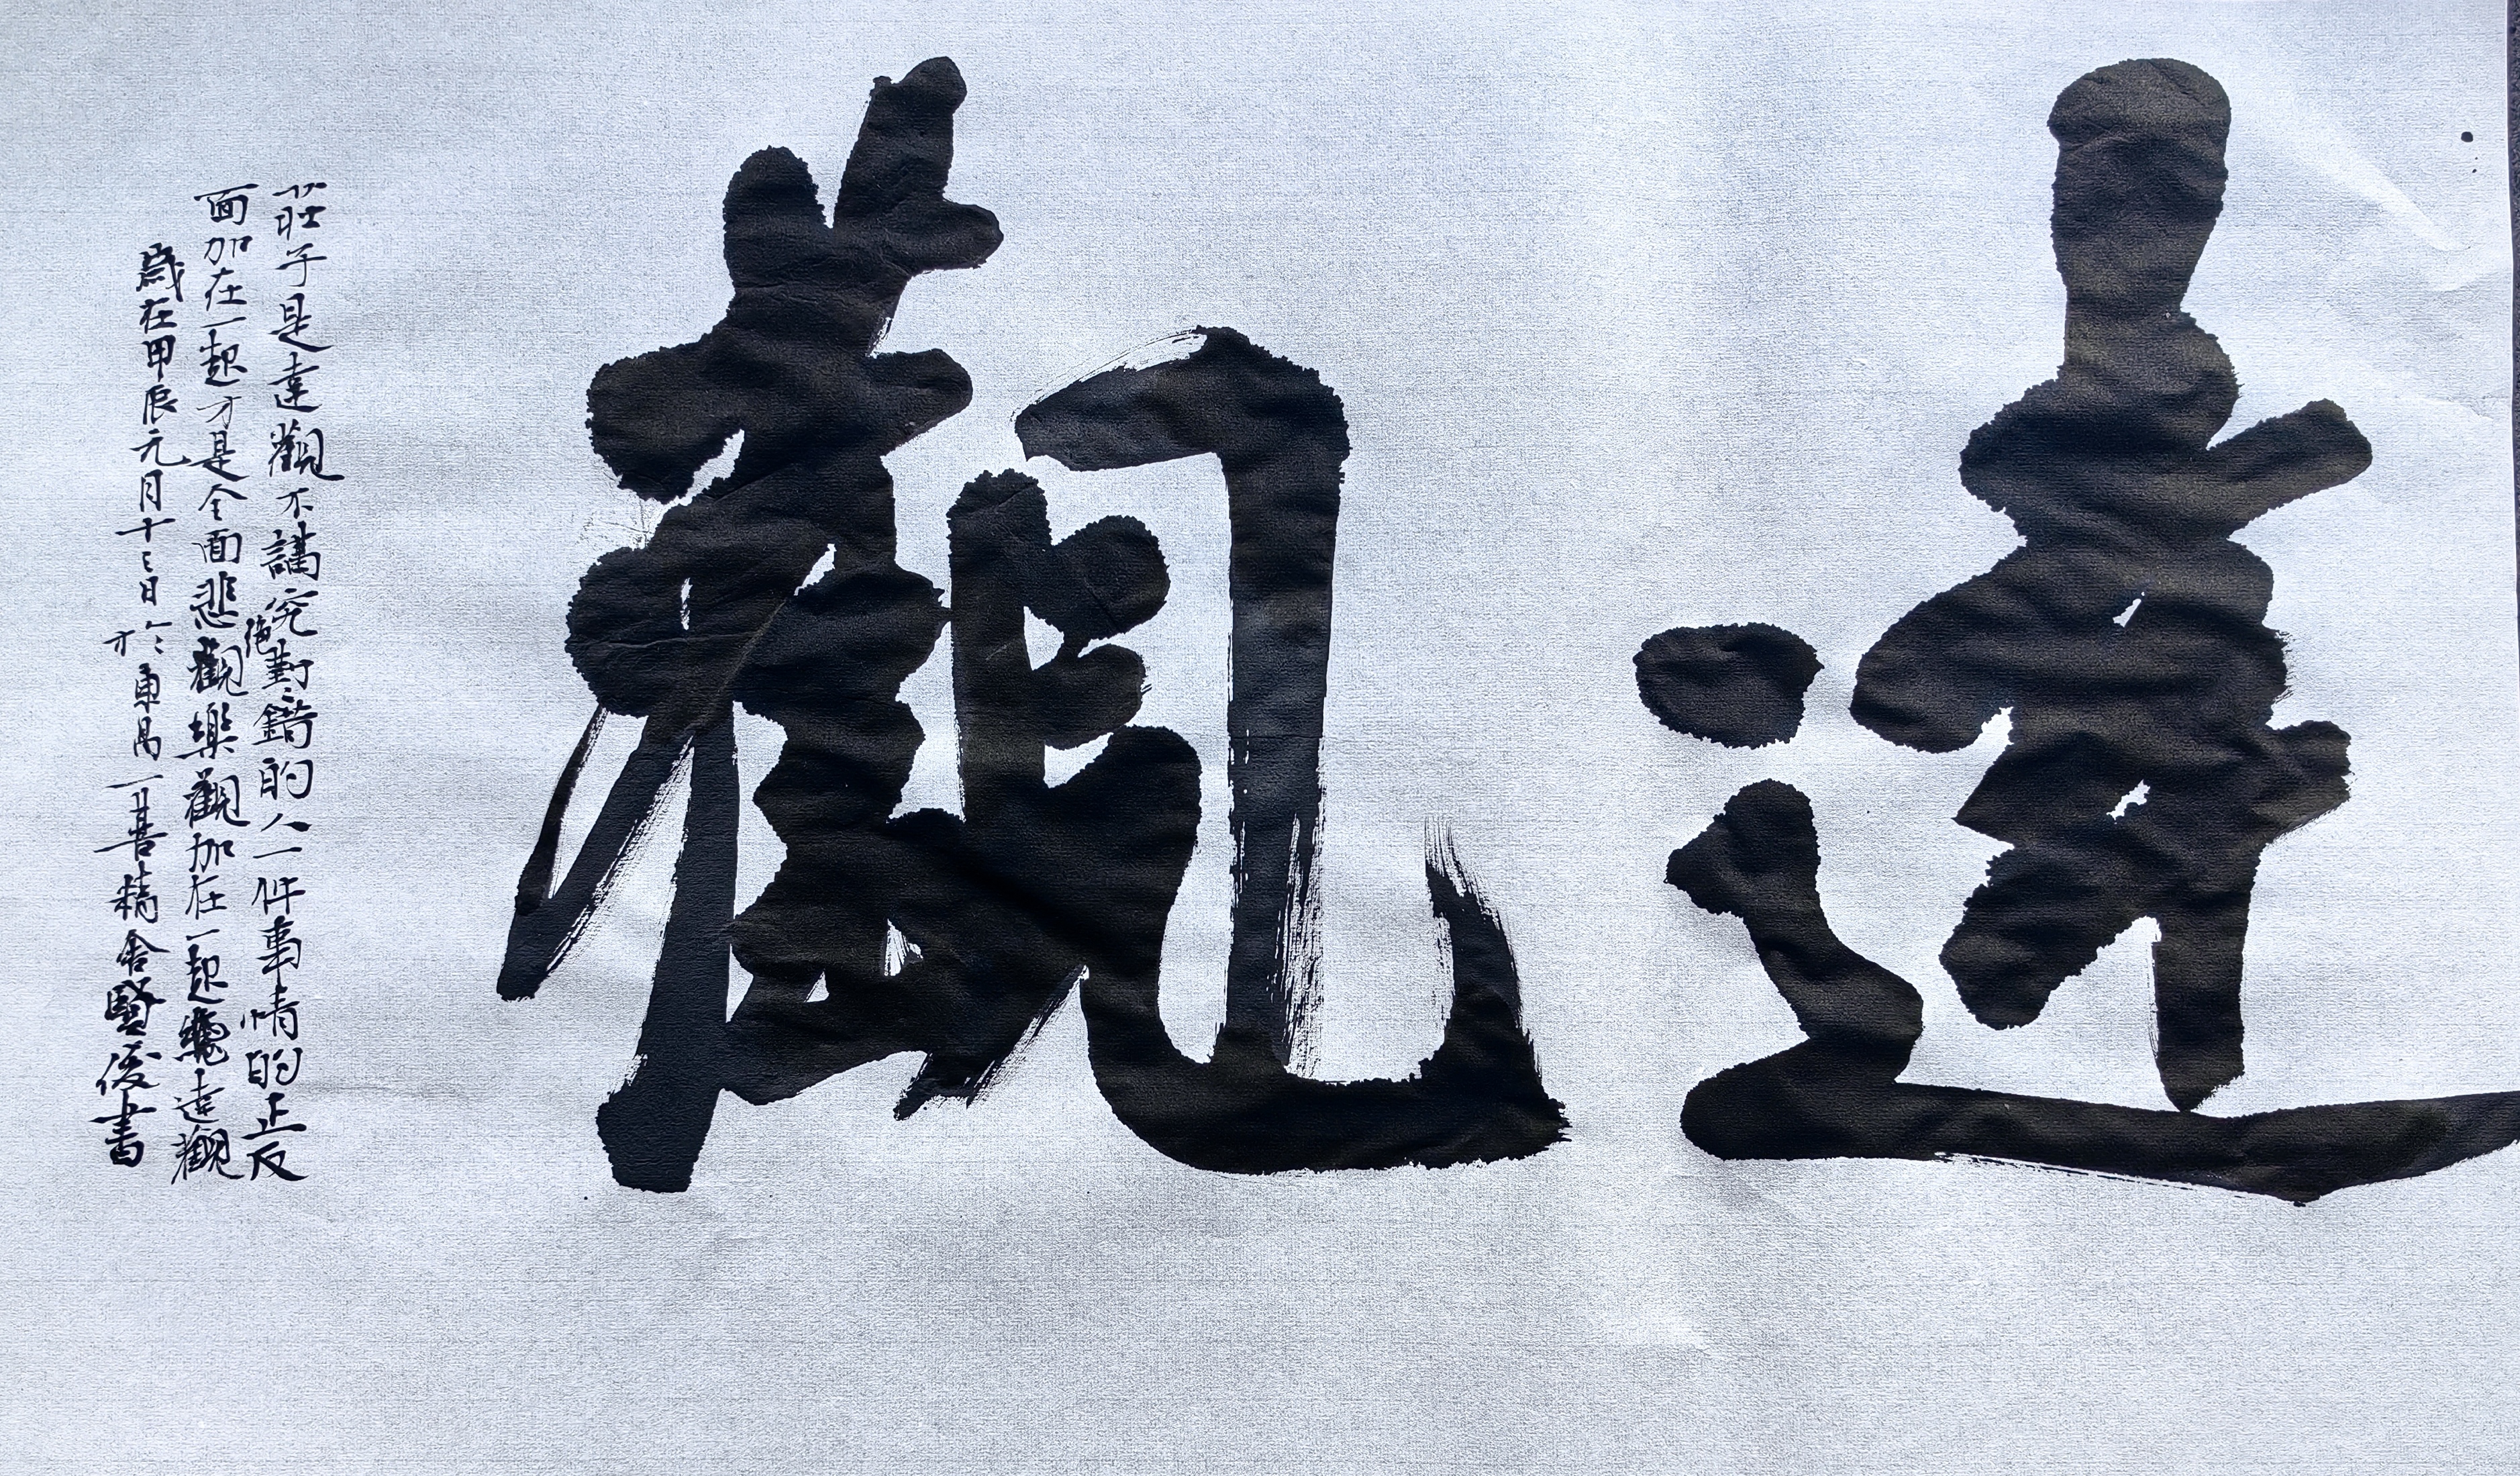 達觀
莊子是達觀不講究絕對〻錯的人一件事情的正反
面加在一起才是全面悲觀樂觀加在一起達觀
歲在甲辰元月十二日於東昌一善精舍賢俊書